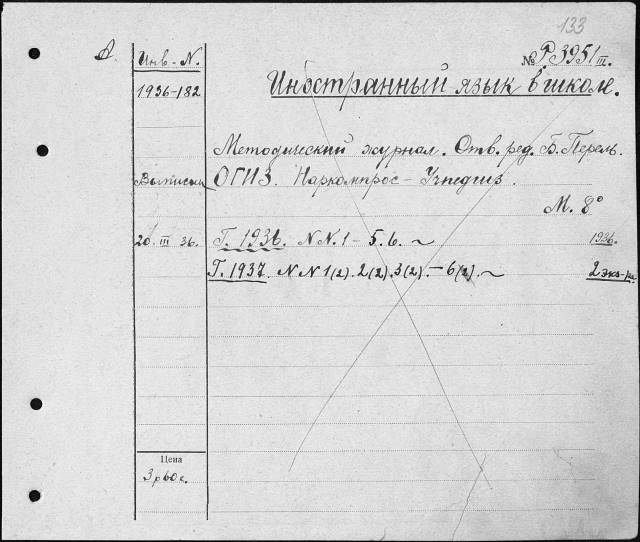 133
А.
Инв-N.
№ Р 3951 III.
1936-182
Иностранный язык в школе.
Методический журнал. Отв. ред. Б. Перель.
Выписан
ОГИЗ. Наркомпрос - Учпедгиз.
М. 8°
20. III 36.
Г. 1936. N N. 1 - 5. 6. ~
1936.
Г. 1937. N N 1(2). 2(2). 3(2). - 6(2). ~
2 экз-ра
Цена
3 р 60 к.